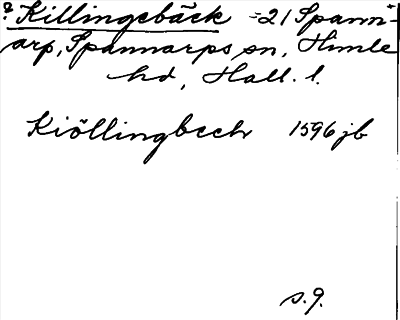 ? Killingebäck = 21 Spann-
arp, Spannarps sn, Himle
hd, Hall. l.
Kiöllingbech 1596 jb
s. 9.